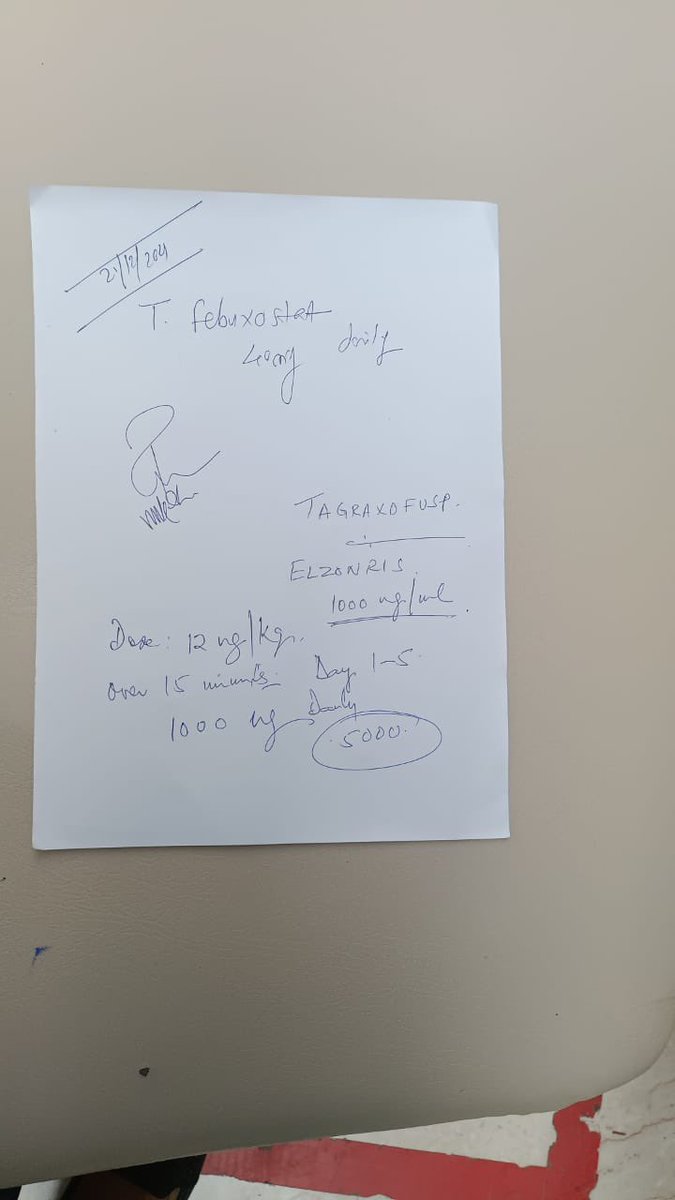 T. febuxostat
40mg daily
TAGRAXOFUSP.
ELZONRIS.
1000 ug/ml.
Dose: 12 ug/kg.
over 15 minutes. Day 1-5.
1000 ug Daily
5000.